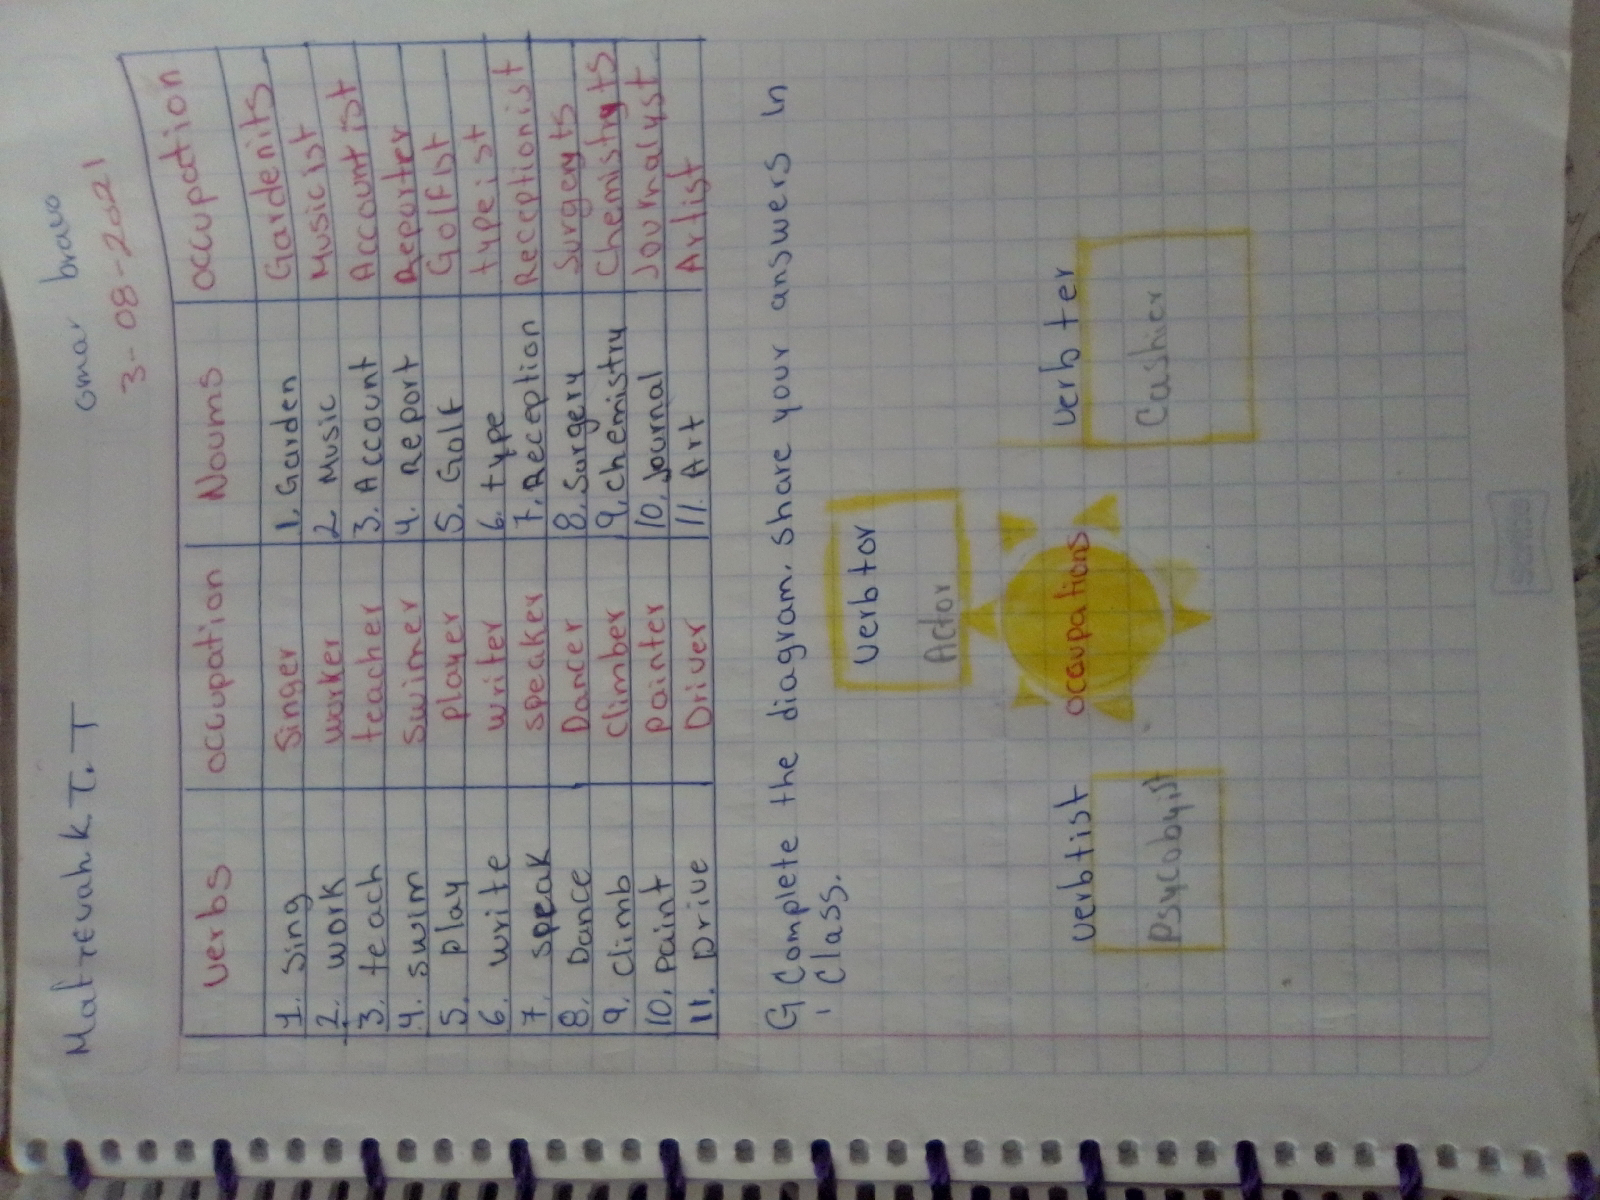 Matrevahk T.T
omar bravo
3-08-2021
verbs occupation Noums occupation
1. Sing Singer 1. Garden Gardenits
2. work worker 2 Music Musicist
3. teach teacher 3. Account Accountist
4. swim swimer 4. Report Reporter
5. play player 5. Golf Golfist
6. write writer 6. type typeist
7. speak speaker 7. Reception Receptionist
8. Dance Dancer 8. Surgery Surgeryts
9. climb climber 9. chemistry Chemistryts
10. paint painter 10. journal Journalyst
11. Drive Driver 11. Art Artist
G Complete the diagram. share your answers in
class.
verb tor
Actor
occupations
verb tist
verb ter
Cashier